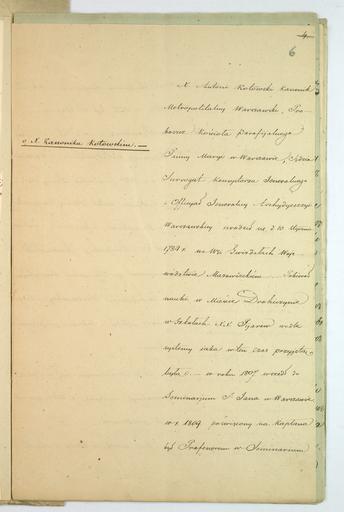 4
6
X. Antoni Kotowski Kanonik
Metropolitalny Warszawski, Pro-
boszcz Kościoła parafijalnego
Panny Maryi w Warszawie, Sędzia
o X. Kanoniku Kotowskim. —
Surrogat Konsystorza Jeneralnego
i Officyał Jeneralny Archidyecezyi
Warszawskiej urodził się d. 10 Stycznia
1784 r. na Wsi Gwizdałach Woje-
wództwie Mazowieckiem.
nauki w Mieście Drohiczynie
w Szkołach X.X. Pijarów wedle
systemu jaka w ten czas przyjęta
była. — w roku 1807 wszedł do
Seminarjum S. Jana w Warszawie
w r. 1809 poświęcony na Kapłana
był Profesorem w Seminarium